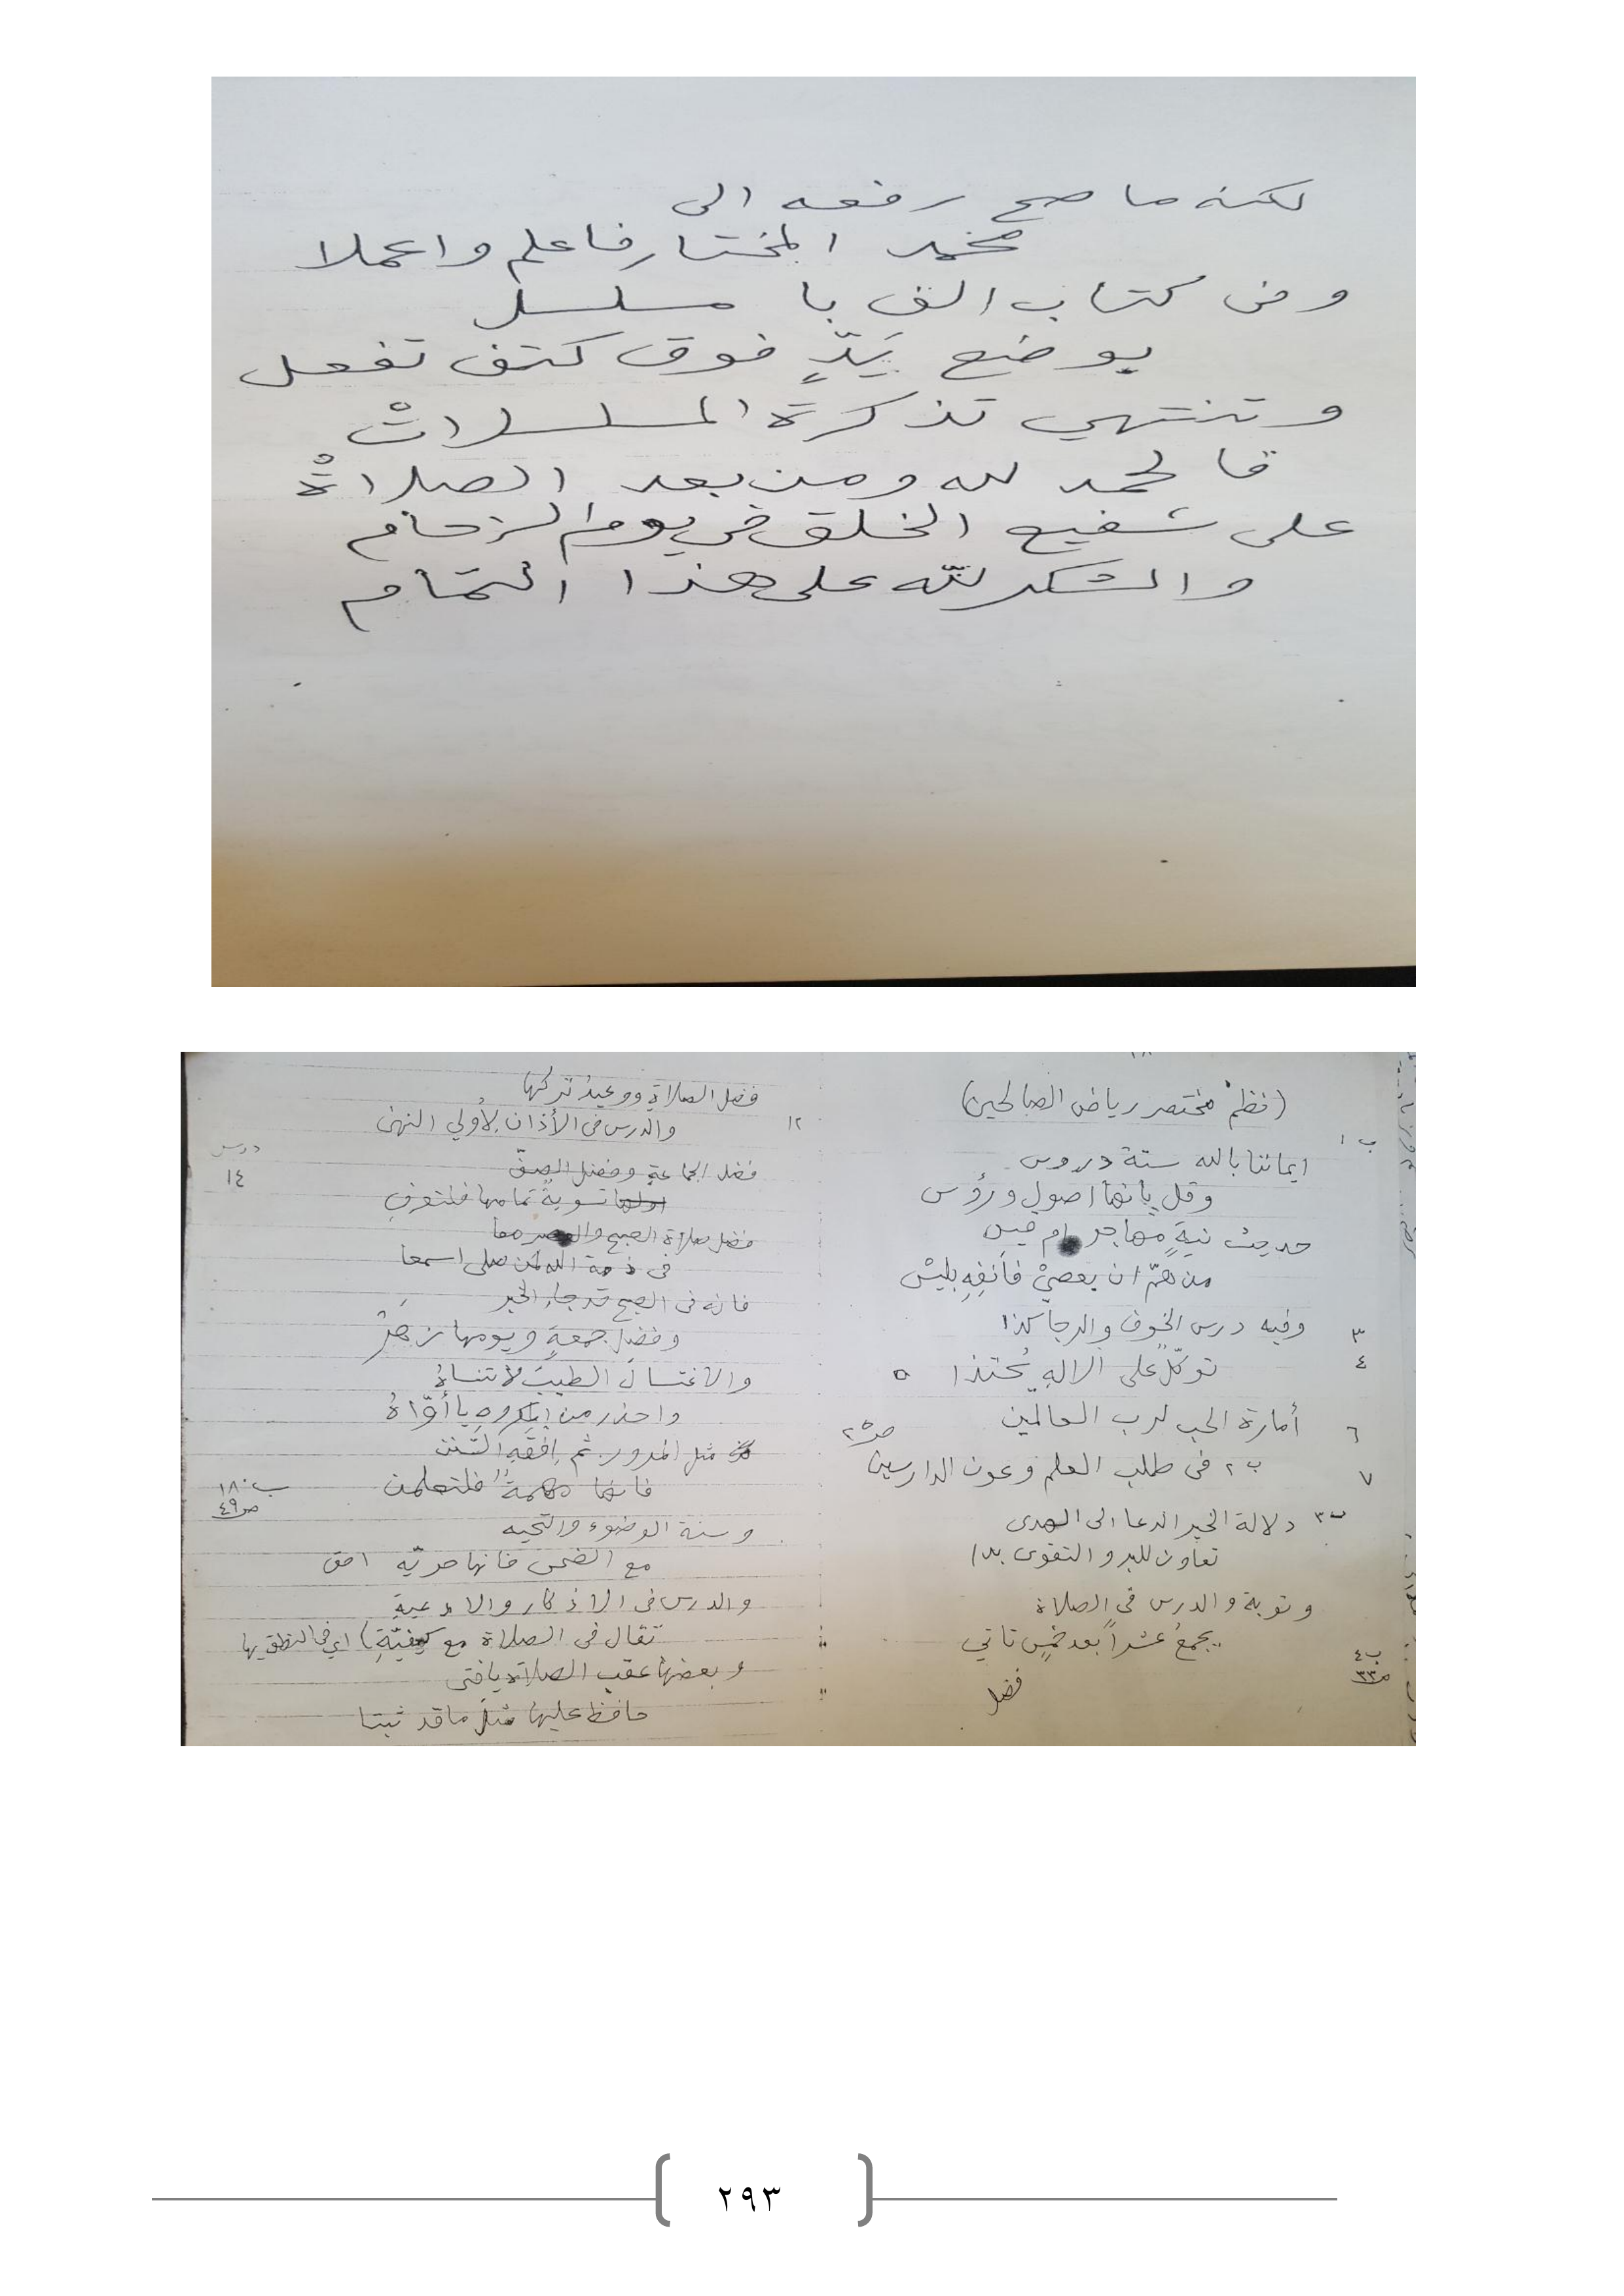 لكنه ما صح رفعه الى
محمد المختار فاعلم واعملا
وفى كتاب الف با مسلسل
بوضع يَدٍّ فوق كتف تفعل
وتنتهي تذكرة المسلسلاتْ
فالحمد لله ومن بعد الصلاةْ
على شفيع الخلق في يوم الزحام
والشكر للّه على هذا التمام
(نظم مختصر رياض الصالحين)
ب ١
ايماننا بالله ستة دروس
وقل بأنها اصول ورؤس
حديث نيةٍ مهاجر ام قيس
من همّ ان يعصيْ فانفِهِ بليسْ
٣ وفيه درس الخوف والرجا كذا
٤ توكّل على الالهِ يُحتذا ٥
٦ أمارة الحب لرب العالمين ص٢٥
٧ ب٢ فى طلب العلم وعون الدارسين
ب٣ دلالة الخير الدعا الى الهدى
تعاون للبر والتقوى بدا
وتوبة والدرس في الصلاة
ب٤ ص٣٣ يجمعُ عشراً بعد خمسٍ تاتي
فضل
فضل الصلاةِ ووعيدُ تركها
١٢ والدرس فى الأذان لأولي النهىٰ
درس ١٤
فضل الجماعةِ وفضل الصفّ
تسويةً تمامها فلتعرفِ
فضل صلاة الصبح والعصر معا
فى ذمة الله لمن صلى اسمعا
فانه فى الصبح قد جاء الخبر
وفضل جمعةٍ ويومها زَهَرْ
والاغتسالَ الطيبَ لا تنساهُ
واحذر من المكروهِ يا أوّاهُ
مثل المرور ثم افقَهِ السّنن
فانها مهمةٌ فلتعلمن ب١٨٠ ص٤٩
وسنة الوضوء والتحيه
مع الضحى فانها حريّه
والدرس فى الاذكار والادعيةِ
تقال فى الصلاة مع كيفيّةِ) اي في النطق بها
وبعضها عقب الصلاة يافتى
حافظ عليها مثل ما قد ثبتا
٢٩٣